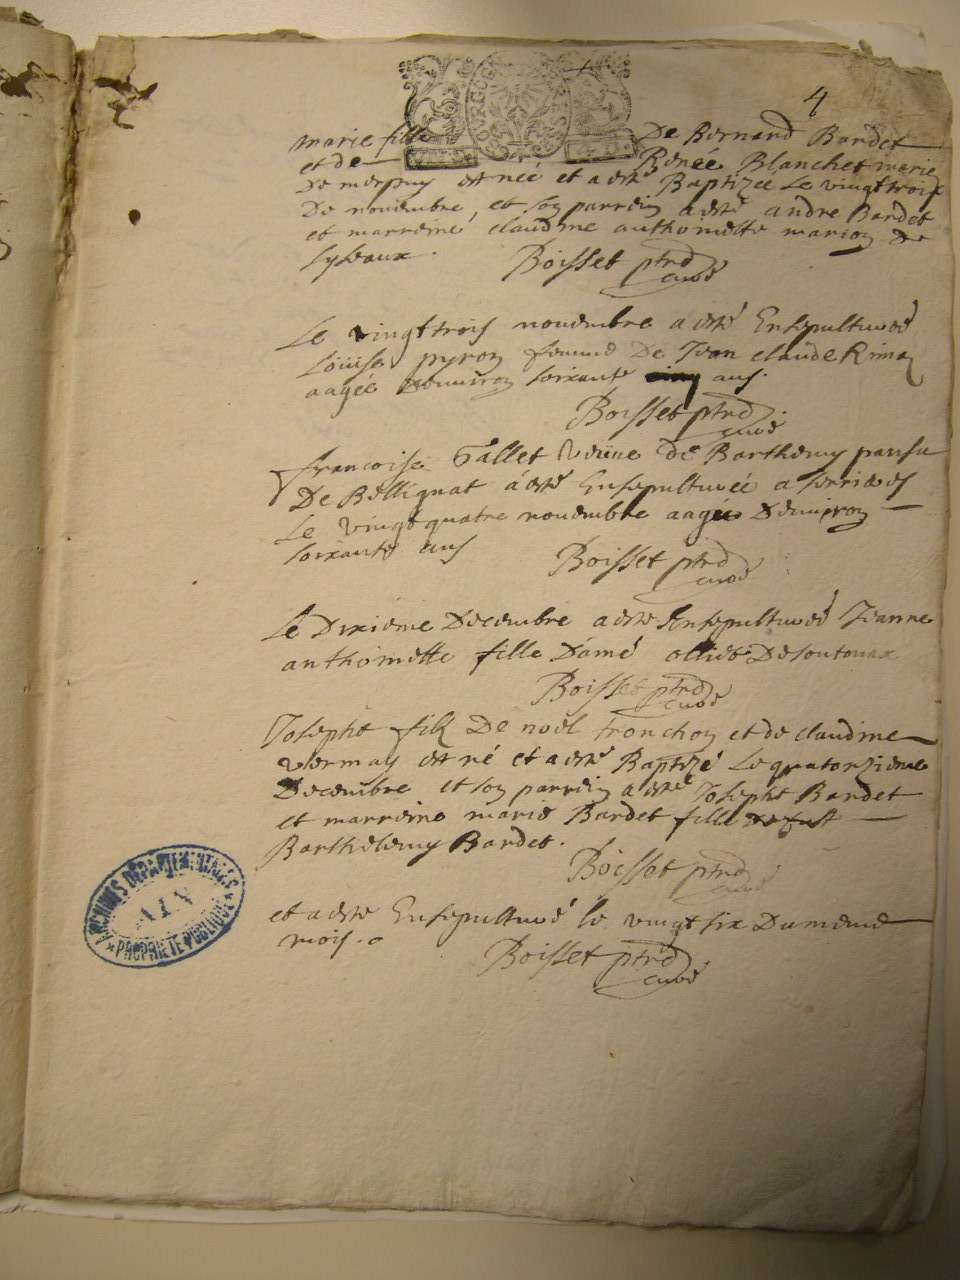 4
BOURGOGNE
marie fille De Bernard Bardet
et de Renée Blanchet marie
est neé et a esté Baptizée Le vingt trois
De novembre, et son parrein a esté andre Bardet
et marreine claudine anthoinette marion de
Boisset ptre
curé
Le vingt trois novembre a esté Ensepulturée
Loüise pyron femme De Jean claude
aagée Denviron soixante ans.
Boisset ptre
curé
francoise Gallet veüve de Barthemy pansu
De Bellignat á esté Ensepulturée a
Le vingt quatre novembre aagée Denviron
soixante ans
Boisset ptre
curé
Le Dixieme Decembre a esté Ensepulturée Jeanne
anthoinette fille Damé
Boisset ptre
curé
Joseph filz De noël tronchon et de claudine
vermay est né et a esté Baptizé Le quatorzieme
Decembre et son parrein a esté Joseph Bardet
et marreine marie Bardet fille de fust
Barthelemy Bardet.
Boisset ptre
curé
et a esté Ensepulturé le vingt six Du meme
mois.
Boisset ptre
curé
ARCHIVES DÉPARTEMENTALES
AIN
PROPRIÉTÉ PUBLIQUE